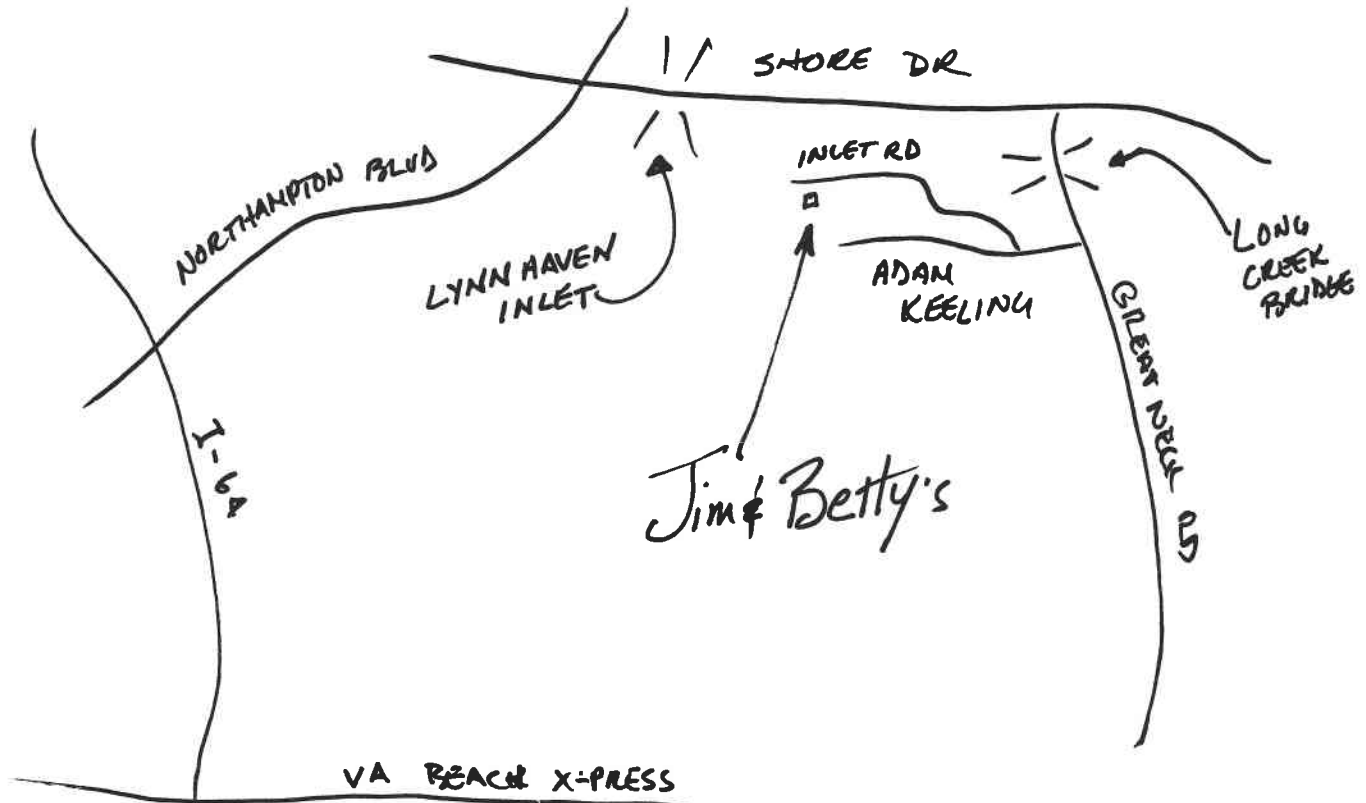 SHORE DR
NORTHAMPTON BLVD
INLET RD
LYNNHAVEN
INLET
ADAM
KEELING
LONG
CREEK
BRIDGE
GREAT NECK RD
I-64
Jim & Betty's
VA BEACH X-PRESS